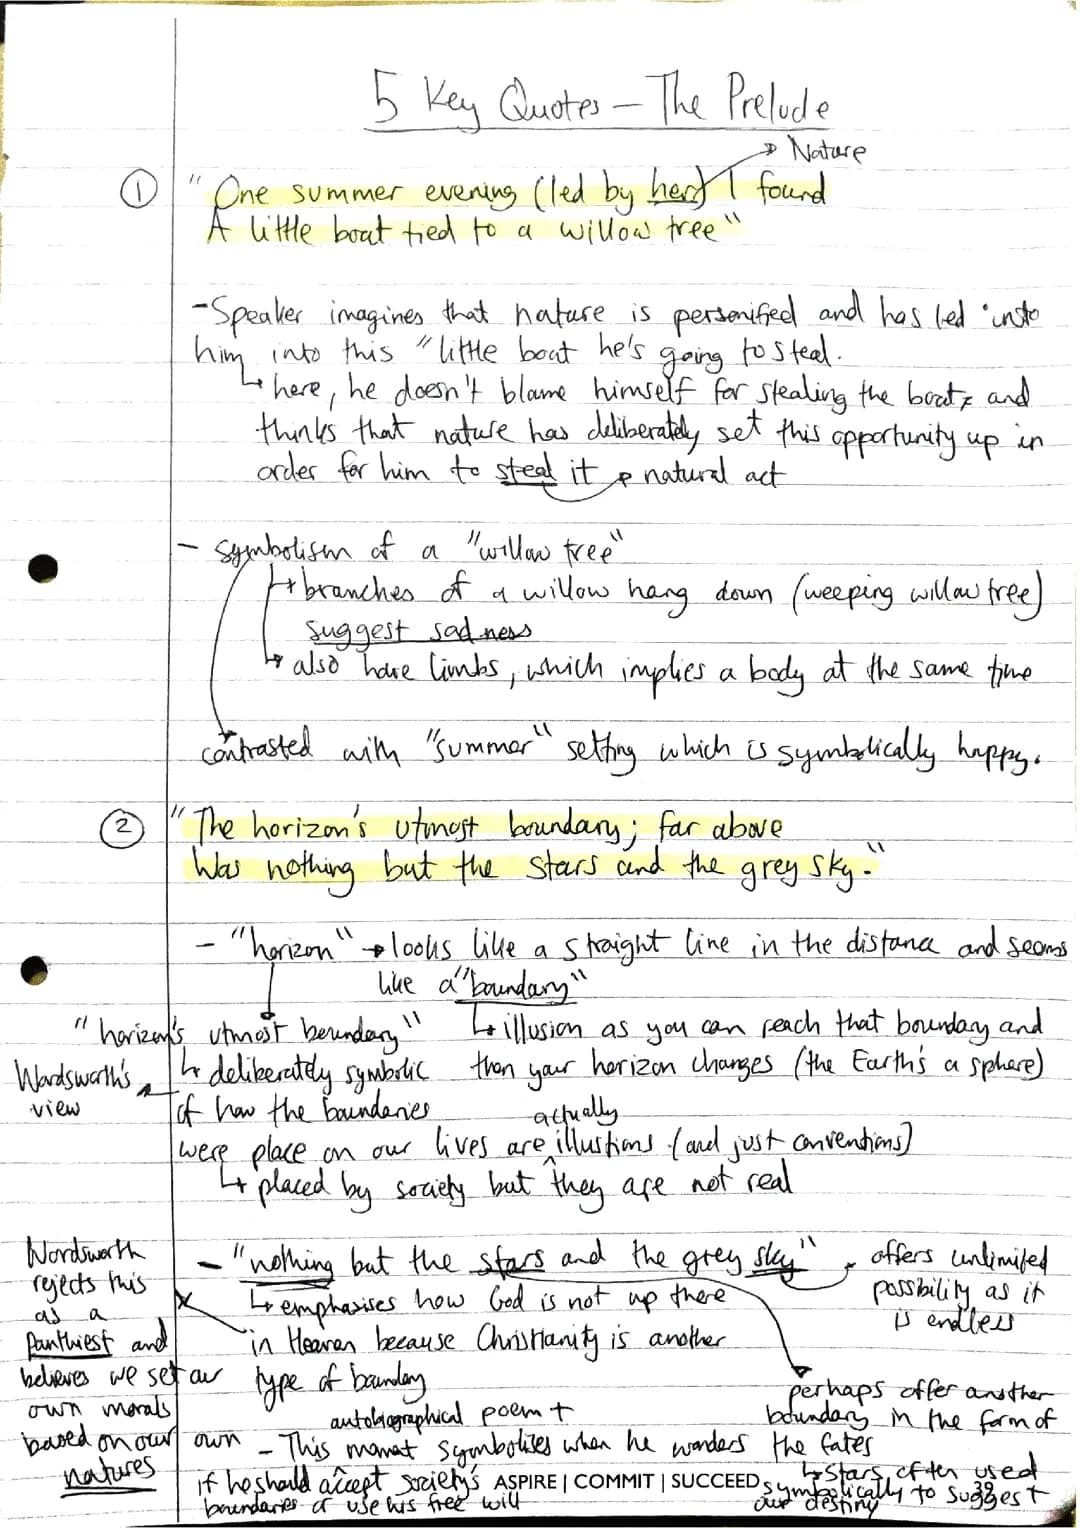 5 Key Quotes – The Prelude
→ Nature
① "One summer evening (led by her) I found
A little boat tied to a willow tree"
- Speaker imagines that nature is personified and has led
him into this "little boat he's going to steal.
↳ here, he doesn't blame himself for stealing the boat, and
thinks that nature has deliberately set this opportunity up in
order for him to steal it → natural act
- symbolism of a "willow tree"
↳ branches of a willow hang down (weeping willow tree)
suggest sadness
↳ also have limbs, which implies a body at the same time
contrasted with "summer" setting which is symbolically happy.
② "The horizon's utmost boundary; far above
Was nothing but the stars and the grey sky."
- "horizon" → looks like a straight line in the distance and seems
like a "boundary"
↳ illusion as you can reach that boundary and
then your horizon changes (the Earth's a sphere)
"horizon's utmost boundary"
↳ deliberately symbolic
of how the boundaries
were place on our lives are actually illustions (and just conventions)
↳ placed by society but they are not real
Wordsworth's
view
- "nothing but the stars and the grey sky"
↳ emphasises how God is not up there
in Heaven because Christianity is another
type of boundary
offers unlimited
possibility as it
is endless
Wordsworth
rejects this
as a
Panthiest and
believes we set our
own morals
based on our own
natures
perhaps offer another
boundary in the form of
the fates
↳ Stars often used
symbolically to suggest
our destiny
autobiographical poem +
- This moment symbolises when he wonders
if he should accept society's
boundaries or use his free will
ASPIRE | COMMIT | SUCCEED
39